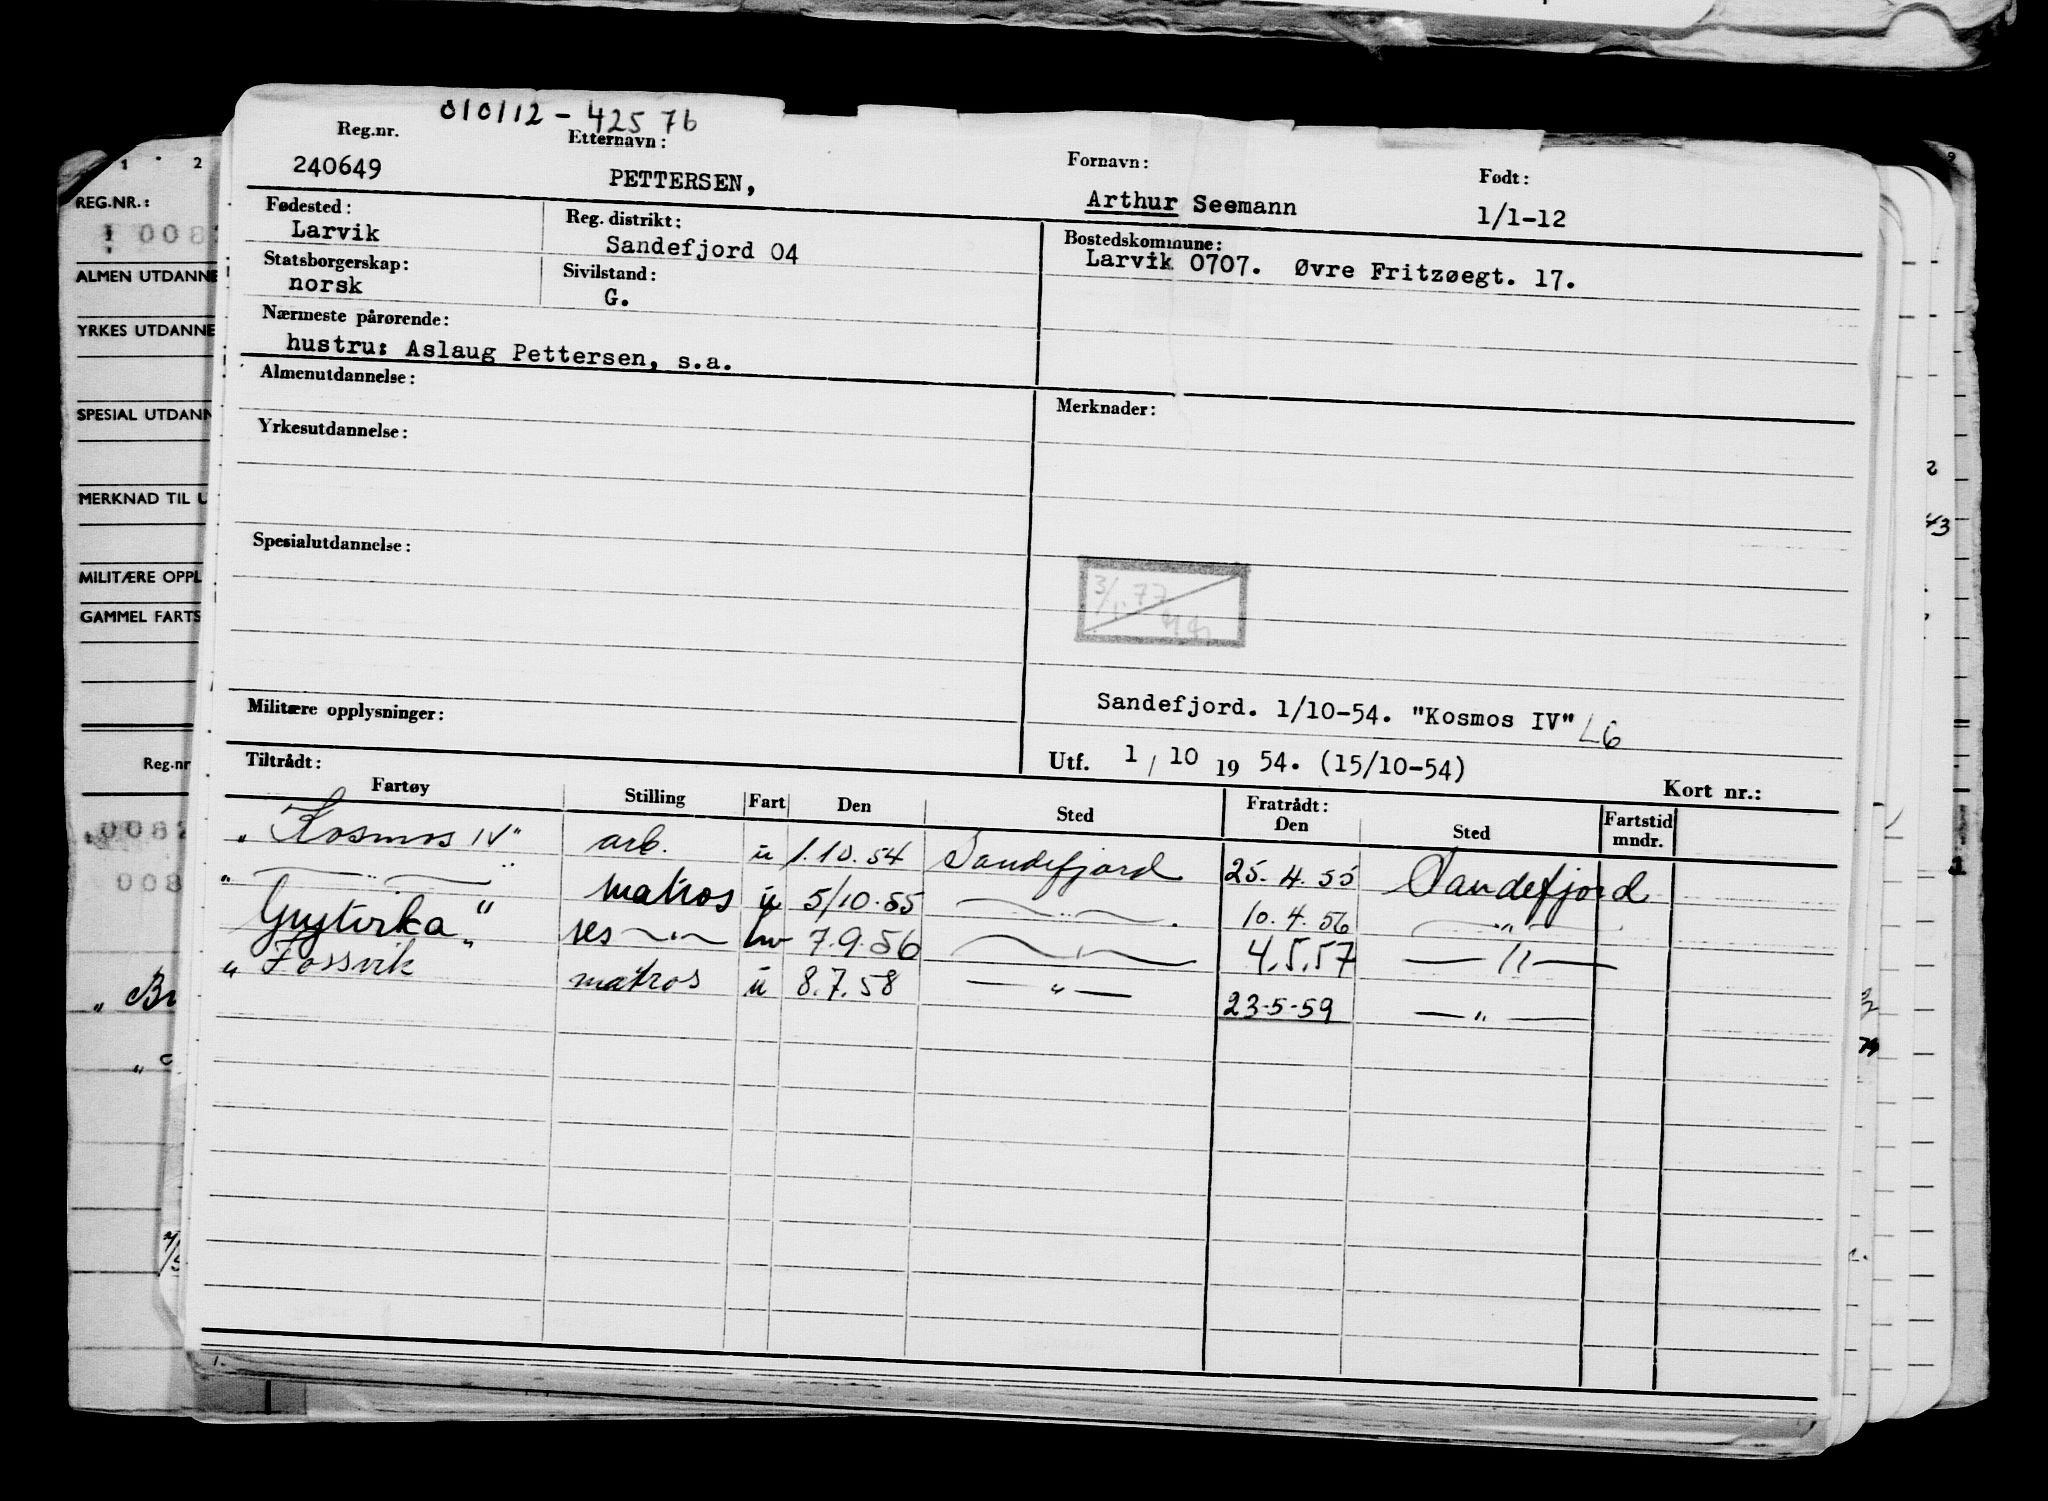 010112 - 42576
Reg.nr. Etternavn: Fornavn: Født:
240649 PETTERSEN, Arthur Seemann 1/1-12
Fødested: Reg. distrikt: Bostedskommune:
Larvik Sandefjord 04 Larvik 0707. Øvre Fritzøegt. 17.
Statsborgerskap: Sivilstand:
norsk G.
Nærmeste pårørende:
hustru: Aslaug Pettersen, s.a.
Almenutdannelse: Merknader:
Yrkesutdannelse:
Spesialutdannelse:
3/1.77
Militære opplysninger: Sandefjord. 1/10-54. "Kosmos IV" L6
Utf. 1 / 10 19 54. (15/10-54)
Tiltrådt: Kort nr.:
Fartøy Stilling Fart Den Sted Fratrådt: Den Sted Fartstid mndr.
"Kosmos IV" arb. u 1.10.54 Sandefjord 25.4.55 Sandefjord
— " — matros u 5/10.55 — " — 10.4.56 — " —
"Grytvika" res — " — hv 7.9.56 — " — 4.5.57 — " —
"Fossvik" matros u 8.7.58 — " — 23-5-59 — " —
1 2
REG.NR.:
ALMEN UTDANNE
YRKES UTDANNE
SPESIAL UTDANN
MERKNAD TIL U
MILITÆRE OPPL
GAMMEL FARTS
Reg.nr
0082
008
"Br